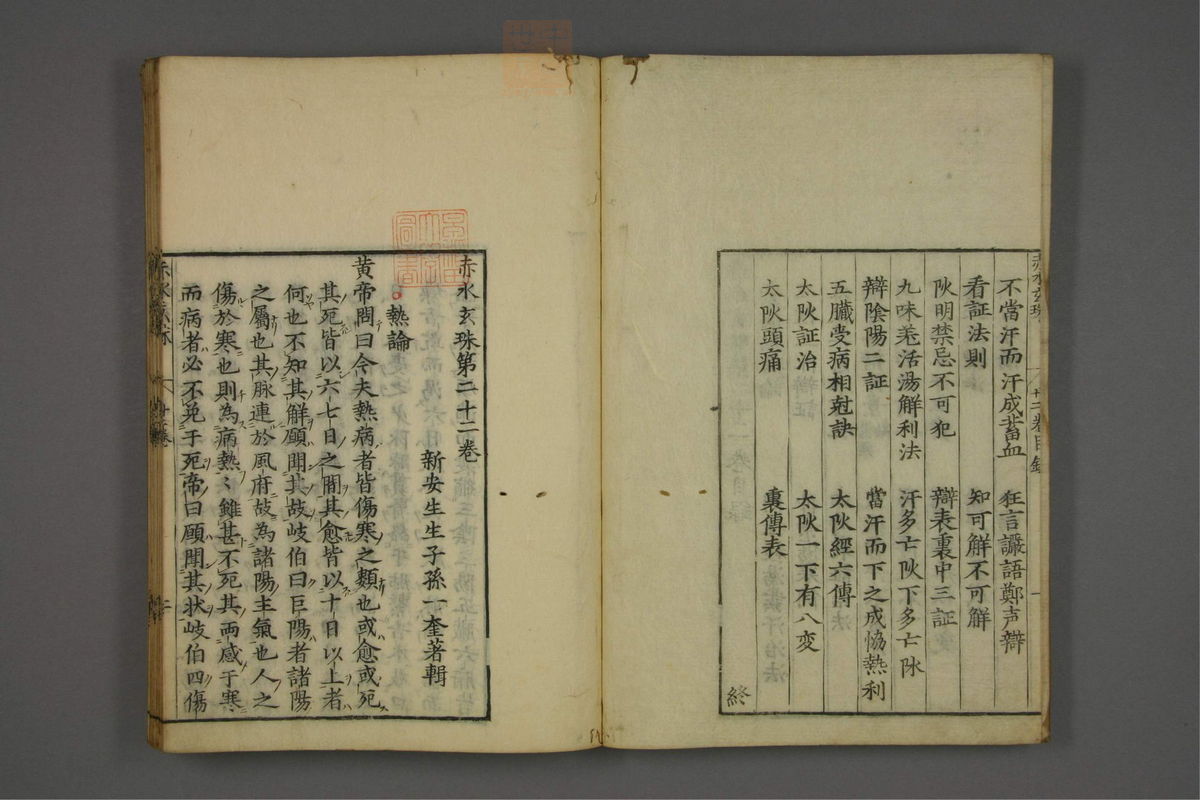 不當汗而汗成蓄血　狂言讝語鄭声辯
看証法則　知可解不可解
阦明禁忌不可犯　辯表裏中三証
九味羌活湯解利法　汗多亡阦下多亡阴
辯陰陽二証　當汗而下之成恊熱利
五臓受病相尅訣　太阦經六傳
太阦証治　太阦一下有八变
太阦頭痛　裏傳表
終
赤水玄珠第二十二巻
新安生生子孫一奎著輯
熱論
黄帝問曰今夫熱病者皆傷寒之類也或愈或死
其死皆以六七日之間其愈皆以十日以上者
何也不知其解願聞其故岐伯曰巨陽者諸陽
之屬也其脉連於風府故為諸陽主氣也人之
傷於寒也則為病熱〻雖甚不死其両感于寒
而病者必不免于死帝曰願聞其状岐伯曰傷